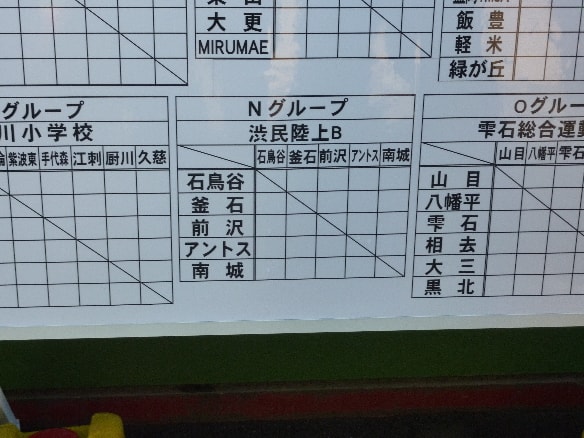 大更
MIRUMAE
飯豊
軽米
緑が丘
グループ
川小学校
紫波東 手代森 江刺 厨川 久慈
Nグループ
渋民陸上B
石鳥谷 釜石 前沢 アントス 南城
石鳥谷
釜石
前沢
アントス
南城
Oグルー
雫石総合運動
山目 八幡平 雫石
山目
八幡平
雫石
相去
大三
黒北